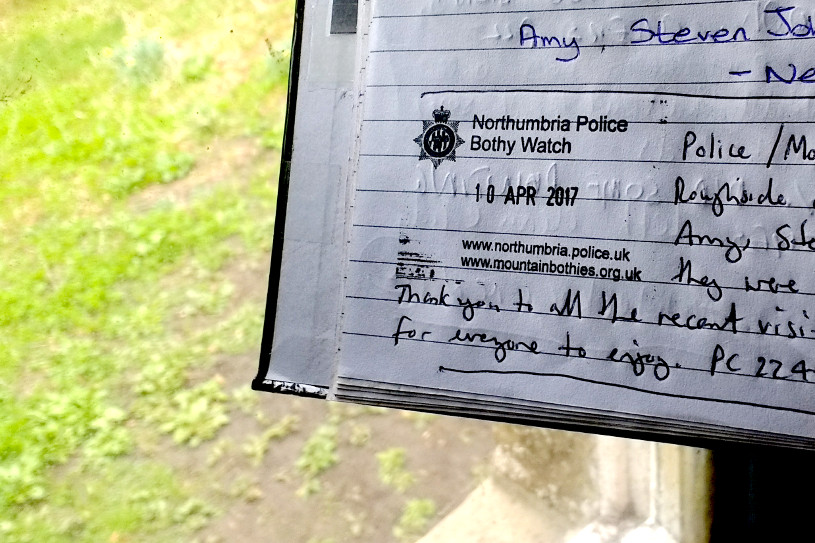 Amy, Steven Jo
- Ne
Northumbria Police
Bothy Watch
Police / Mo
10 APR 2017
Roughside
Amy, Ste
www.northumbria.police.uk
www.mountainbothies.org.uk
they were
Thank you to all the recent visi
for everyone to enjoy. PC 224